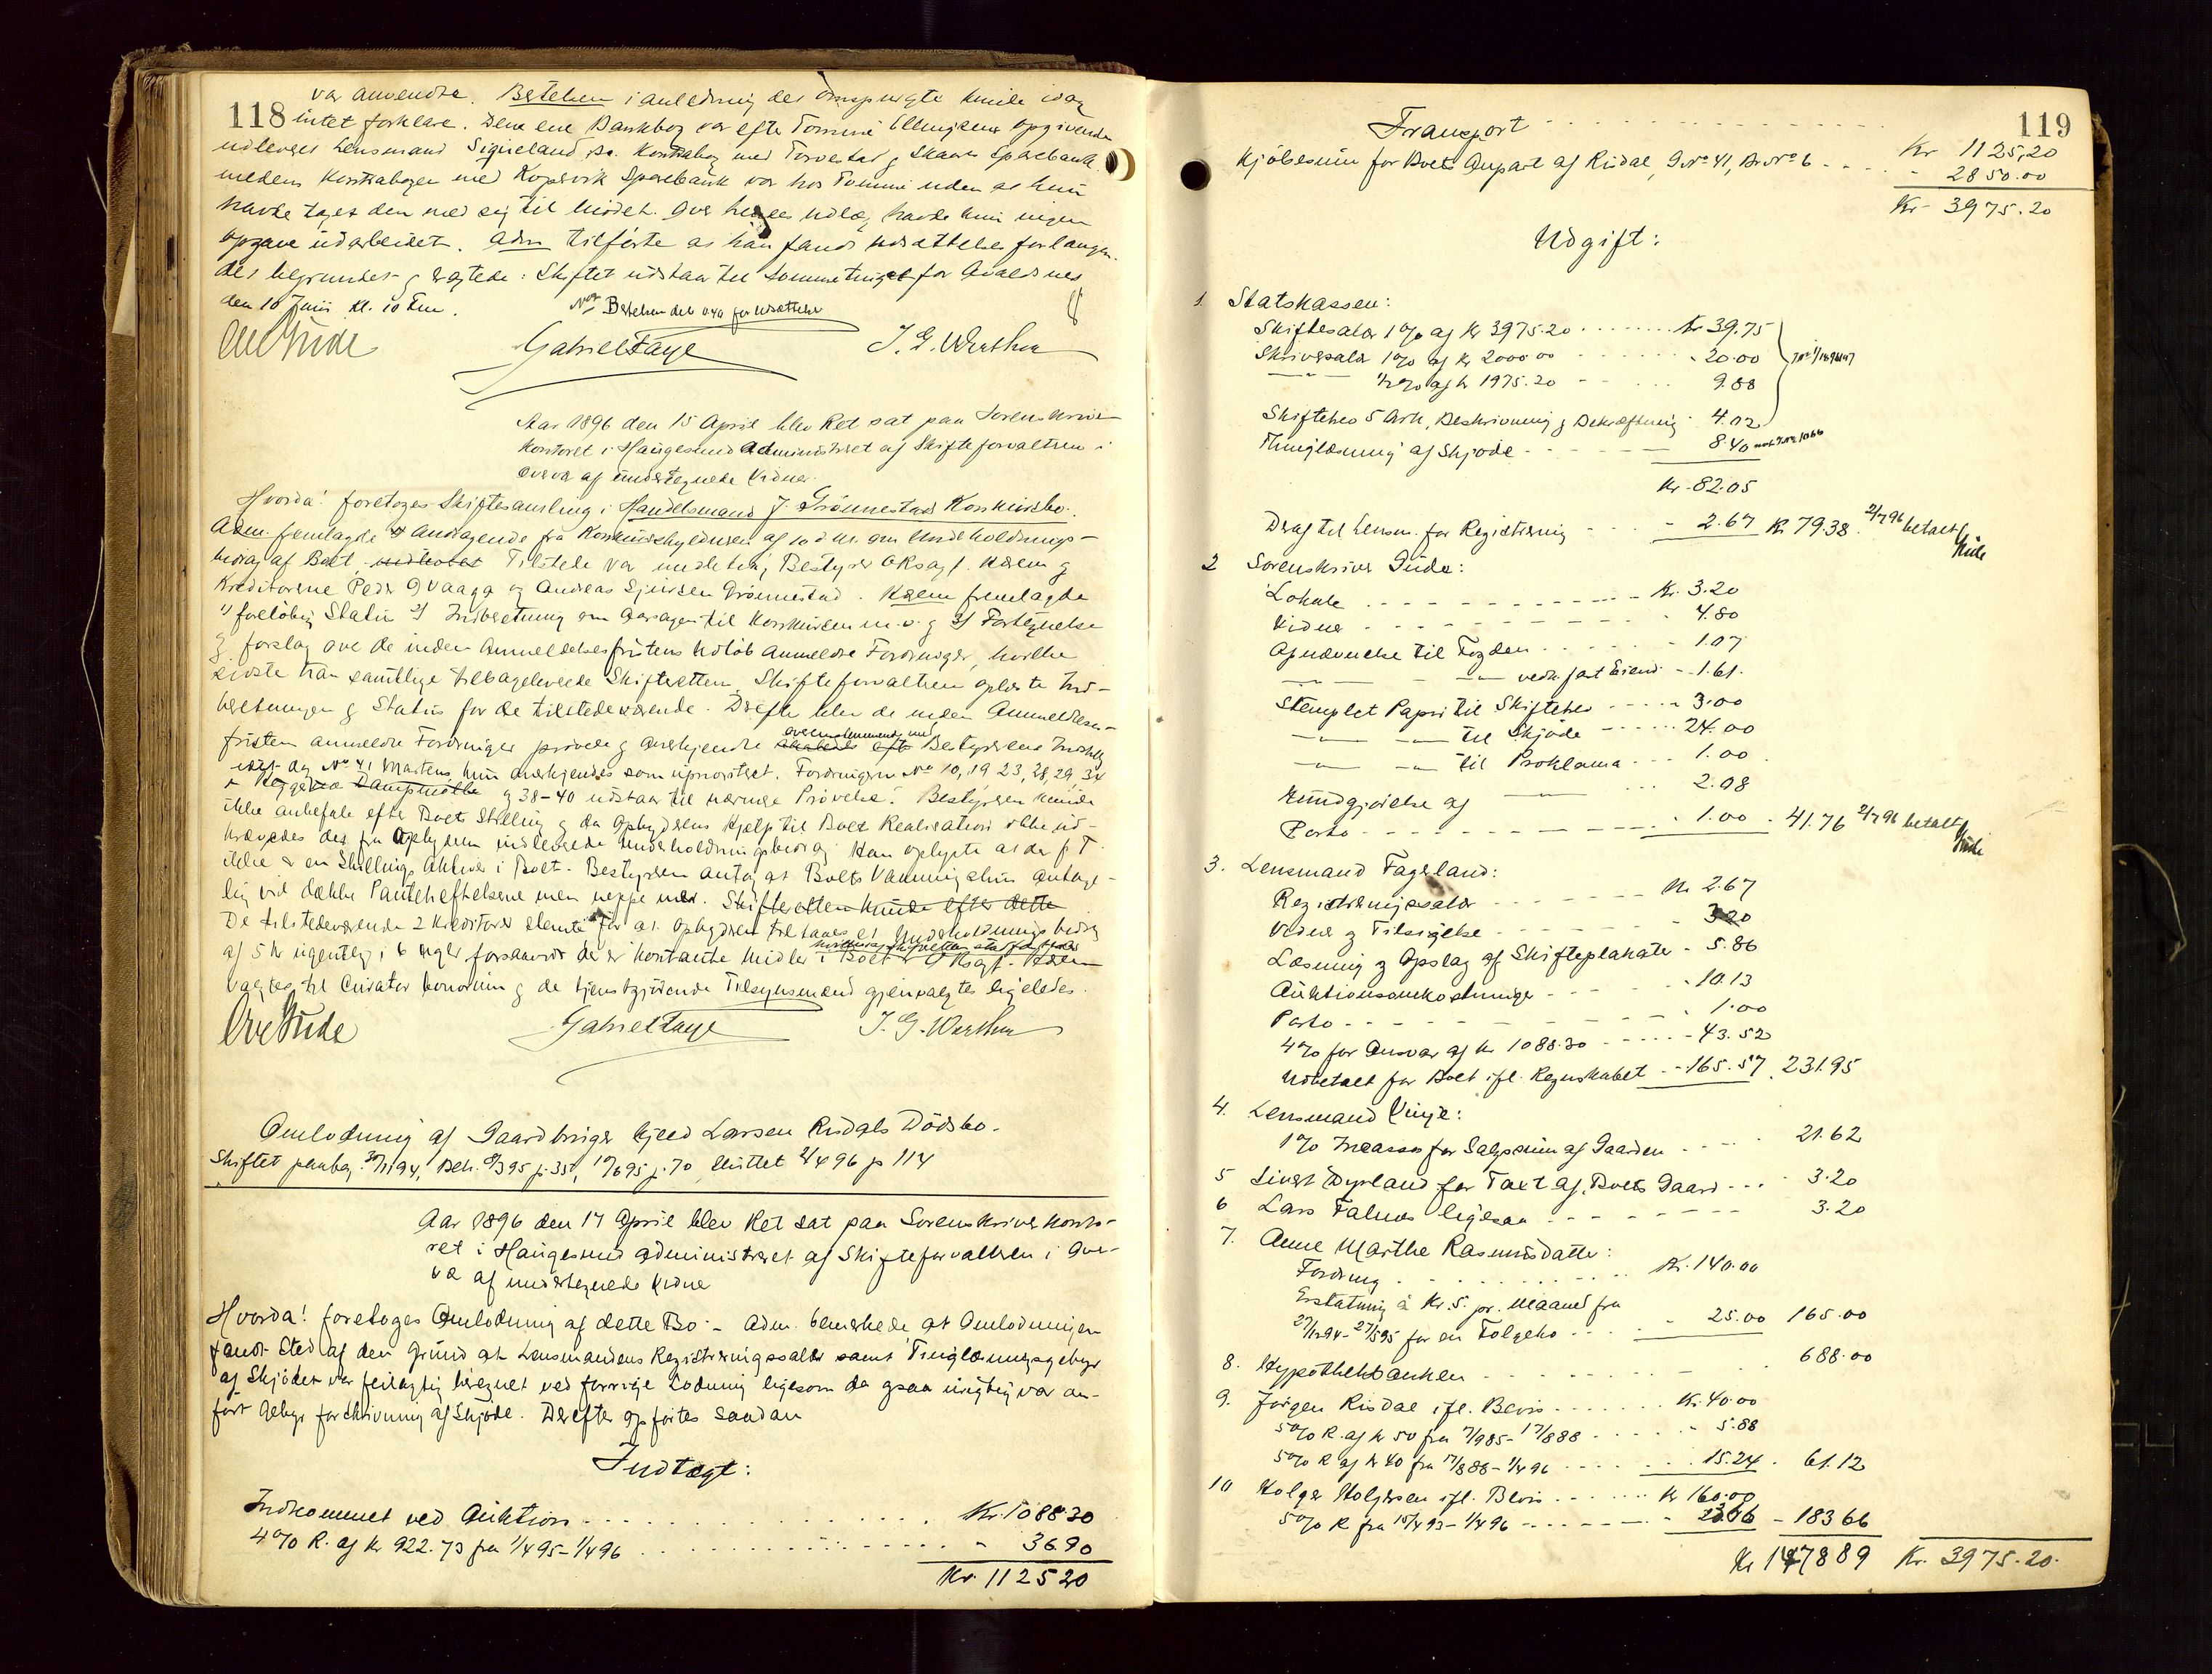 118
var anvendte. Betelsen i anledning der Omspurgte kunde idag
intet forklare. Den ene Bankbog var efter Tommine Ellingsens Opgivende
udleveret Lensmand Sigveland, na. Kontrabog med Torvestad & Skaare Sparebank
medens Kontrabogen med Kopervik Sparebank var hos Tommine uden at hun
havde taget den med sig til Mödet. Over hendes udlæg havde hun ingen
Opgave udarbeidet. Adm tilförte at han fandt udsættelse forlangen-
des begrundet & vedtede: Skiftet udstaar til Sommertinget for Avaldsnes
den 10 Juni Kl. 10 Fm.
Ove Gude Gabriel Faye J. G. Werthen
Aar 1896 den 15 April blev Ret sat paa Sorenskriver
Kontoret i Haugesund Administreret af Skifteforvalteren i
Overvær af undertegnede Vidner.
Hvorda! foretoges Skiftesamling i Handelsmand J. Grönnestads Konkursbo.
Adm. fremlagde Andragende fra Konkursskyldneren af 10 d M. om Underholdnings-
bidrag af Boet. Tilstede var midlertidig Bestyrer ORsagf. Kræm &
Kreditorerne Peder G Vaaga og Andreas Sjursen Grönnestad. Kræm fremlagde
1) foreløbig Status 2) Indberetning om Aarsagen til Konkursen m. v. & 3) Fortegnelse
& forslag over de inden Anmeldelsesfristens Udlöb anmeldte Fordringer, hvilke
sidste han samtlige tilbageleverede Skifteretten. Skifteforvalteren oplæste Ind-
beretningen & Status for de tilstedeværende. Derefter blev de inden Anmeldelses-
overensstemmende med
fristen anmeldte Fordringer prövede & anerkjendte Bestyrerens Indstilling
idet dog No 41 Martens kun anerkjendes som uprioriteret. Fordringerne No 10, 19 23, 28, 29, 34
& 38-40 udstaar til nærmere Prövelse. Bestyreren kunde
ikke anbefale efter Boets Stilling & da Opbyderens Hjælp til Boets Realisation ikke ud-
krævedes det fra Opbyderen indleverede Underholdningsbidrag. Han oplyste at der p T.
ikke er en Skillings Aktiver i Boet. Bestyreren antog at Boets Varer antage-
lig vil dække Panteheftelserne men neppe mer. Skifteretten kunde efter dette
De tilstedeværende 2 Kreditorer stemte for at Opbyderen tilstaaes et Underholdningsbidrag
af 5 Kr ugentlig i 6 uger forsaavidt der er kontante Midler i Boet. ORsagf. Kræm
valgtes til Curator bonorum & de tjenstgjörende Tilsynsmænd gjenvalgtes ligeledes.
Ove Gude Gabriel Faye J. G. Werthen
Omlodning af Gaardbruger Gjerd Larsen Risdals Dödsbo.
Skiftet paabeg. 30/11 94, Beh. 8/3 95 p. 35, 10/6 95 p. 70, Sluttet 2/4 96 p 114
Aar 1896 den 17 April blev Ret sat paa Sorenskriverkonto-
ret i Haugesund administreret af Skifteforvalteren i Over-
vær af undertegnede Vidner
Hvorda! foretoges Omlodning af dette Bo. - Adm. bemerkede, at Omlodningen
fandt Sted af den Grund at Lensmandens Registreringssalær samt Tinglæsningsgebyr
af Skjödet var feilagtig beregnet ved forrige Lodning ligesom da ogsaa urigtig var an-
fört Gebyr for skrivning af Skjöde. Derefter opförtes saadan
Indtægt:
Indkommet ved Auktion Kr. 1088 30
4% R. af Kr 922.73 fra 1/4 95 - 1/4 96 - 36.90
Kr. 1125 20
119
Transport Kr 1125,20
Kjöbesum for Boets Anpart af Risdal, G.No 41, Br.No 6 - 2850.00
Kr. 3975.20
Udgift:
1. Statskassen:
Skiftesalær 1% af Kr 3975.20 Kr 39.75
Skriversalær 1% af Kr 2000.00 20.00
-"- 1/2% af Kr 1975.20 9.88
Skiftebrev 5 Ark, Beskrivning & Bekræftning 4.02
Thinglæsning af Skjöde 8.40
Kr. 82.05
Drag til Lensm. for Registrering - 2.67 Kr 79.38. 2/7 96 betalt Gude
2 Sorenskriver Gude:
Lokale Kr. 3.20
Vidner 4.80
Ajudnelse til Fogden 1.07
-"- -"- vedk. fast Eiend. - 1.61.
Stemplet Papir til Skiftebrev 3.00
-"- -"- til Skjöde 24.00
-"- -"- til Proklama 1.00
Kundgjörelse af -"- 2.08
Porto 1.00 . 41.76 2/7 96 betalt Gude
3. Lensmand Fagerland:
Registreringssalær Kr 2.67
Vidner & Tilsigelse 3.20
Læsning & Opslag af Skifteplakater - 5.86
Auktionsomkostninger 10.13
Porto 1.00
4% for Ansvar af Kr 1088.30 - 43.52
Udbetalt for Boet ifl. Regnskabet - 165.57 231.95
4. Lensmand Vinje:
1% Incasso for Salgssum af Gaarden 21.62
5 Sivert Dyrland for Taxt af Boets Gaard 3.20
6 Lars Falnes ligesaa 3.20
7. Anne Marthe Rasmusdatter:
Fordring Kr. 140.00
Erstatning à Kr. 5. pr. Maaned fra
27/12 94 - 27/5 95 for en Fölgeko - 25.00 165.00
8. Hypothekbanken 688.00
9. Jörgen Risdal ifl. Bevis Kr. 40.00
5% R. af Kr 50 fra 7/9 85 - 17/8 88 - 5.88
5% R af Kr 40 fra 17/8 88 - 1/4 96 15.24 . 61.12
10 Holger Holgersen ifl. Bevis Kr 160.00
5% R fra 15/4 93 - 1/4 96 - 23.66 - 183 66
Kr 1478 89 Kr. 3975.20.